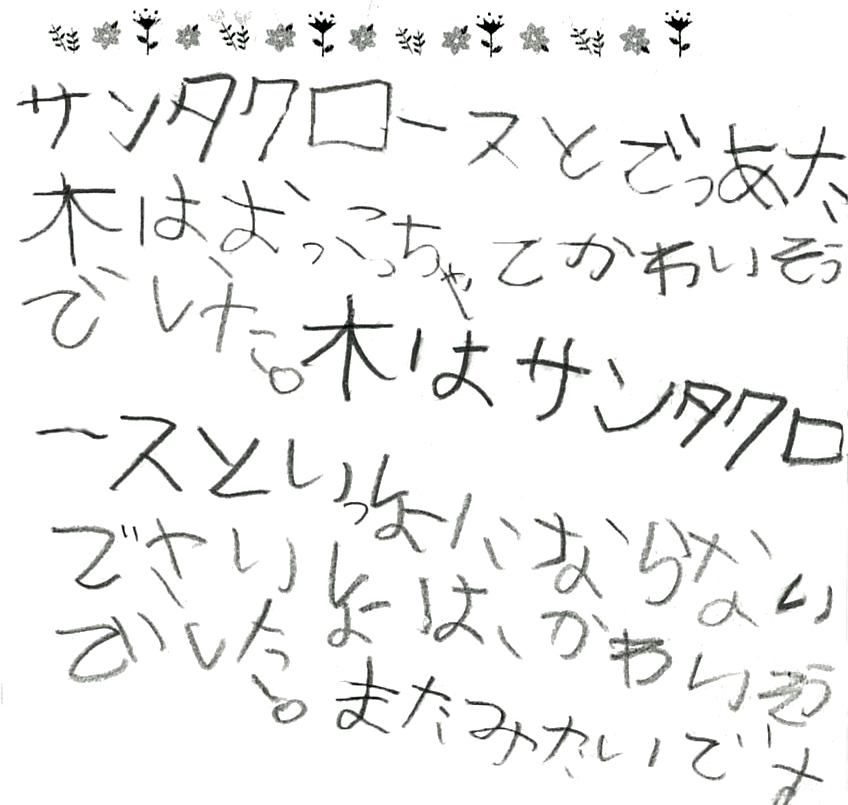 サンタクロースとでっあた
木はおっこっちゃてかわいそう
でした。木はサンタクロ
ースといっしょにならない
でさいしょは、かわいそう
でした。またみたいです